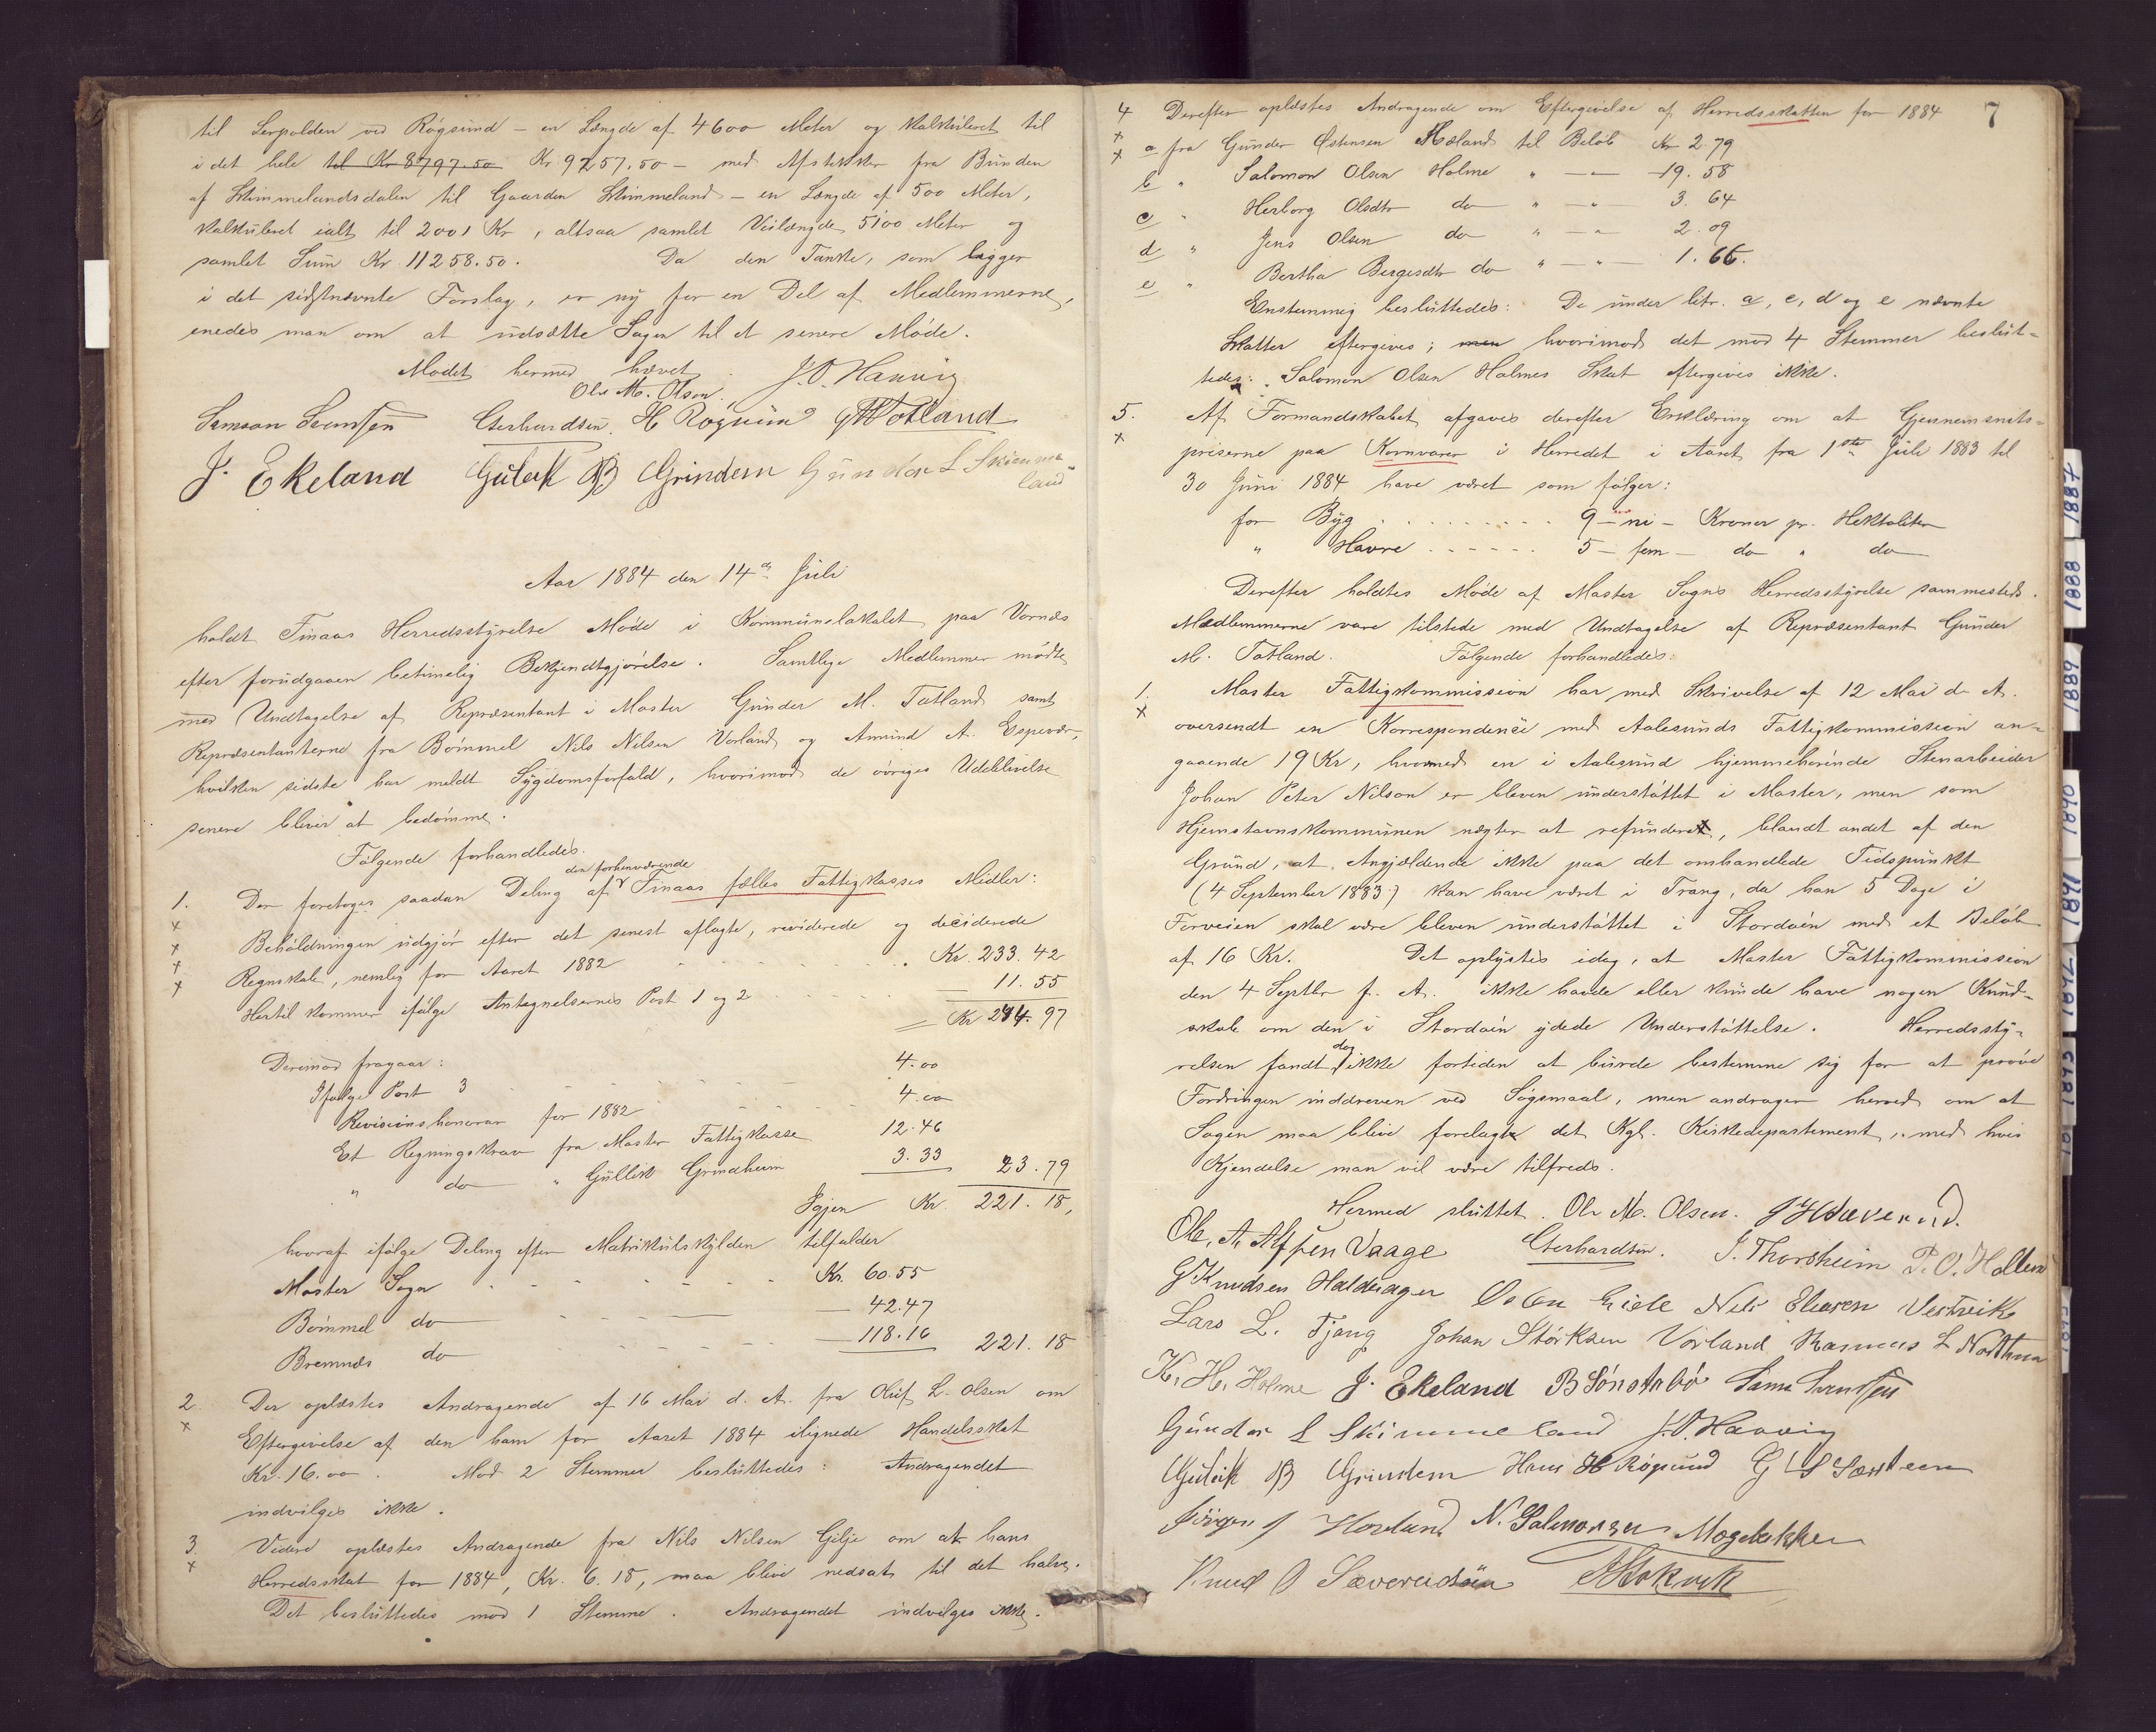 til Serpolden ved Røgsund – en Længde af 4600 Meter og kalkuleret til
i det hele til Kr 8797.50 Kr 9257,50 – med Afstikker fra Bunden
af Skimmelandsdalen til Gaarden Skimmeland – en Længde af 500 Meter,
kalkuleret ialt til 2001 Kr, altsaa samlet Veilængde 5100 Meter og
samlet Sum Kr. 11258.50. Da den Tanke, som ligger
i det sidstnævnte Forslag, er ny for en Del af Medlemmerne,
enedes man om at udsætte Sagen til et senere Møde.
Mødet hermed hævet.
Ole M. Olsen. J. O. Hauvig
Samson Svensen Gerhardsen. H Røgsund GMTotland
J. Ekeland Guleik B Grindem Gunder L Skimme
land
Aar 1884 den 14de Juli
holdt Finaas Herredsstyrelse Møde i Kommunelokalet paa Vornæs
efter forudgaaen betimelig Bekjendtgjørelse. Samtlige Medlemmer mødte
med Undtagelse af Repræsentant i Moster Gunder M. Totland samt
Repræsentanterne fra Bømmel Nils Nilsen Vorland og Amund A. Espevær,
hvilken sidste har meldt Sygdomsforfald, hvorimod de øvriges Udeblivelse
senere bliver at bedømme.
Følgende forhandledes.
den forhenværende
1. Der foretoges saadan Deling af Finaas fælles Fattigkasses Midler:
x
x Beholdningen udgjør efter det senest aflagte, reviderede og deciderede
x Regnskab, nemlig for Aaret 1882 Kr. 233.42
x Hertil kommer ifølge Antegnelsernes Post 1 og 2 11.55
= Kr 244.97
Derimod fragaar:
Ifølge Post 3 4.00
Revisionshonorar for 1882 4.00
Et Regningskrav fra Moster Fattigkasse 12.46
" do " Gullik Grindheim 3.33 23.79
Igjen Kr. 221.18,
hvoraf ifølge Deling efter Matrikulskylden tilfalder
Moster Sogn Kr. 60.55
Bømmel do — 42.47
Bremnæs do — 118.16 221.18
2. Der oplæstes Andragende af 16 Mai d. A. fra Oluf L. Olsen om
x Eftergivelse af den ham for Aaret 1884 ilignede Handelsskat
Kr. 16.00. Mod 2 Stemmer besluttedes: Andragendet
indvilges ikke.
3. Videre oplæstes Andragende fra Nils Nilsen Gilje om at hans
x Herredsskat for 1884, Kr. 6.18, maa blive nedsat til det halve.
Det besluttedes mod 1 Stemme. Andragendet indvilges ikke.
7
4 Derefter oplæstes Andragende om Eftergivelse af Herredsskatten for 1884
x
x a fra Gunder Østensen Hæland til Beløb Kr 2.79
b " Salomon Olsen Holme " — — 19.58
c " Herborg Olsdtr do " — " — 3.64
d " Jens Olsen do " — " — 2.09
e " Bertha Bergesdtr do " — " — 1.66.
Enstemmig besluttedes: De under litr. a, c, d og e nævnte
Skatter eftergives; men hvorimod det mod 4 Stemmer beslut-
tedes: Salomon Olsen Holmes Skat eftergives ikke.
5. Af Formandskabet afgaves derefter Erklæring om at Gjennemsnits-
x priserne paa Kornvarer i Herredet i Aaret fra 1ste Juli 1883 til
30 Juni 1884 have været som følger:
for Byg . . . . . . . . 9 – ni – Kroner pr. Hektoliter
" Havre . . . . . . 5 – fem – do " do
Derefter holdtes Møde af Moster Sogns Herredsstyrelse sammesteds.
Medlemmerne vare tilstede med Undtagelse af Repræsentant Gunder
M. Totland. Følgende forhandledes:
1. Moster Fattigkommission har med Skrivelse af 12 Mai d. A.
x oversendt en Korrespondence med Aalesunds Fattigkommission an-
gaaende 19 Kr, hvormed en i Aalesund hjemmehørende Stenarbeider
Johan Peter Nilson er bleven understøttet i Moster, men som
Hjemstavnskommunen nægter at refundere, blandt andet af den
Grund, at Angjældende ikke paa det omhandlede Tidspunkt
(4 September 1883) kan have været i Trang, da han 5 Dage i
Forveien skal være bleven understøttet i Stordøen med et Beløb
af 16 Kr. Det oplystes idag, at Moster Fattigkommission
den 4 Septbr f. A. ikke havde eller kunde have nogen Kund-
skab om den i Stordøen ydede Understøttelse. Herredssty-
dog
relsen fandt ikke fortiden at burde bestemme sig for at prøve
Fordringen inddreven ved Søgsmaal, men andrager herved om at
Sagen maa blive forelagt det Kgl. Kirkedepartement, med hvis
Kjendelse man vil være tilfreds.
Hermed sluttet. Ole M. Olsen.
Ole. A. Alfsen Vaage Gerhardsen. J. Thorsheim P. O. Hollund
G Knudsen Haldorager Nils Elíasen Vestvik
Lars L. Tjong Johan Størksen Vorland Rasmus L Nordtun
K. H. Holme J. Ekeland B Sønstabø Sams Svensen
Gunder L Skimmeland J. O. Hauvig
Guleik B Grindem Hans H Røgsund G L
Jørgen J Hovland N. Salmonsen Mogelokker
Knud O Sæverudsøen
1887
1888
1889
1890
1891
1892
1893